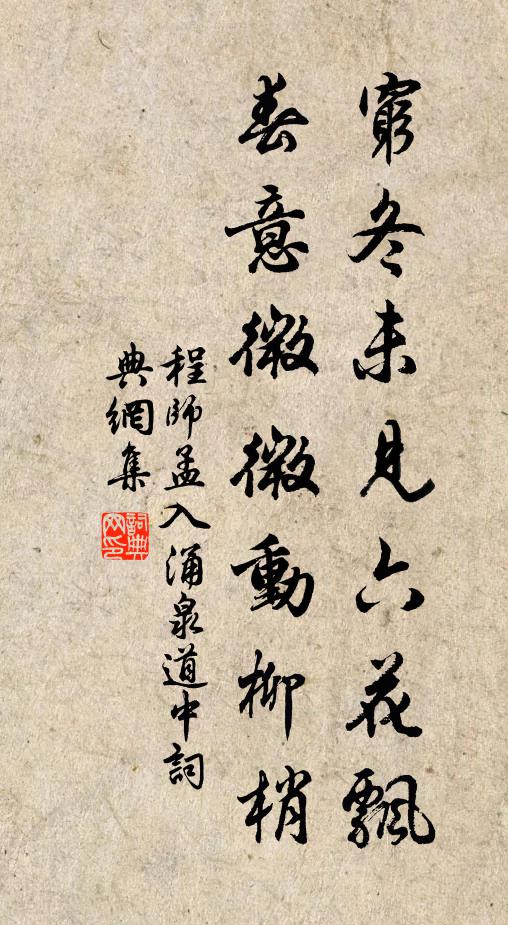 窮冬未見六花飄
春意微微動柳梢
程師孟入涌泉道中詞
典網集
詞典網印